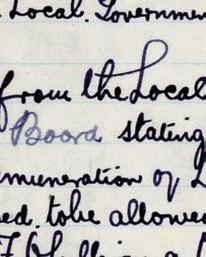 Local Governmen
from the Local
Board stating
muneration of L
ed. to be allowed